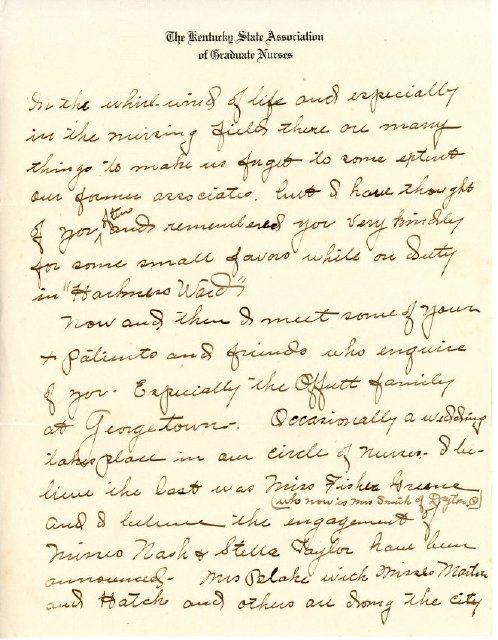 The Kentucky State Association
of Graduate Nurses
In the whirl-wind of life and especially
in the nursing field there are many
things to make us forget to some extent
our former associates. but I have thought
of you often and remembered you very kindly
for some small favors while on duty
in "Harkness Ward"
Now and then I meet some of your
+ patients and friends who enquire
of you. Especially the Offutt family
at Georgetown. Occasionally a wedding
takes place in our circle of nurses. I be-
lieve the last was Miss Fisher Greene
(who now is Mrs Smith of Dayton, O)
and I believe the engagement of
Misses Nash & Stella Taylor have been
announced. Mrs Blake with Misses Martin
and Hatch and others are doing the city